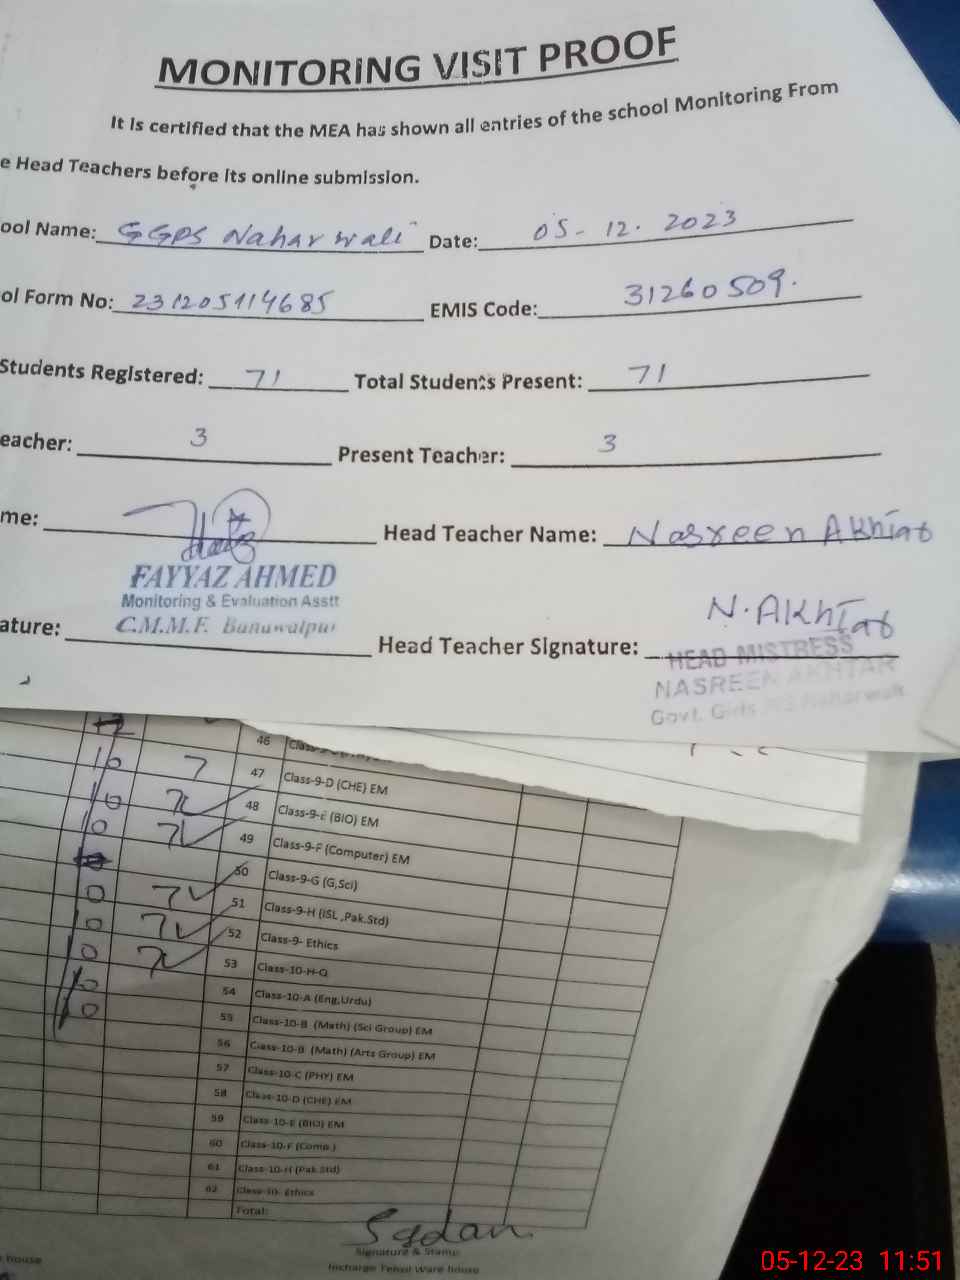 MONITORING VISIT PROOF
It is certified that the MEA has shown all entries of the school Monitoring From
e Head Teachers before its online submission.
ool Name: GGPS Naharwali Date: 05-12.2023
ol Form No: 231205114685 EMIS Code: 31260509.
Students Registered: 71 Total Students Present: 71
eacher: 3 Present Teacher: 3
me: Head Teacher Name: Nasreen Akhtar
FAYYAZ AHMED
Monitoring & Evaluation Asstt
C.M.M.F. Bahawalpur
ature: Head Teacher Signature: N. Akhtar
HEAD MISTRESS
NASREEN AKHTAR
Govt. Girls
46
16 7 47 Class-9-D (CHE) EM
10 48 Class-9-E (BIO) EM
10 49 Class-9-F (Computer) EM
50 Class-9-G (G,Sci)
0 51 Class-9-H (ISL ,Pak.Std)
10 52 Class-9- Ethics
10 53 Class-10-H-Q
10 54 Class-10-A (Eng,Urdu)
10 55 Class-10-B (Math) (Sci Group) EM
56 Class-10-B (Math) (Arts Group) EM
57 Class-10-C (PHY) EM
58 Class-10-D (CHE) EM
59 Class-10-E (BIO) EM
60 Class-10-F (Comp.)
61 Class-10-H (Pak.Std)
62 Class-10- Ethics
Total:
Signature & Stamp
house Incharge Tehsil Ware house
05-12-23 11:51